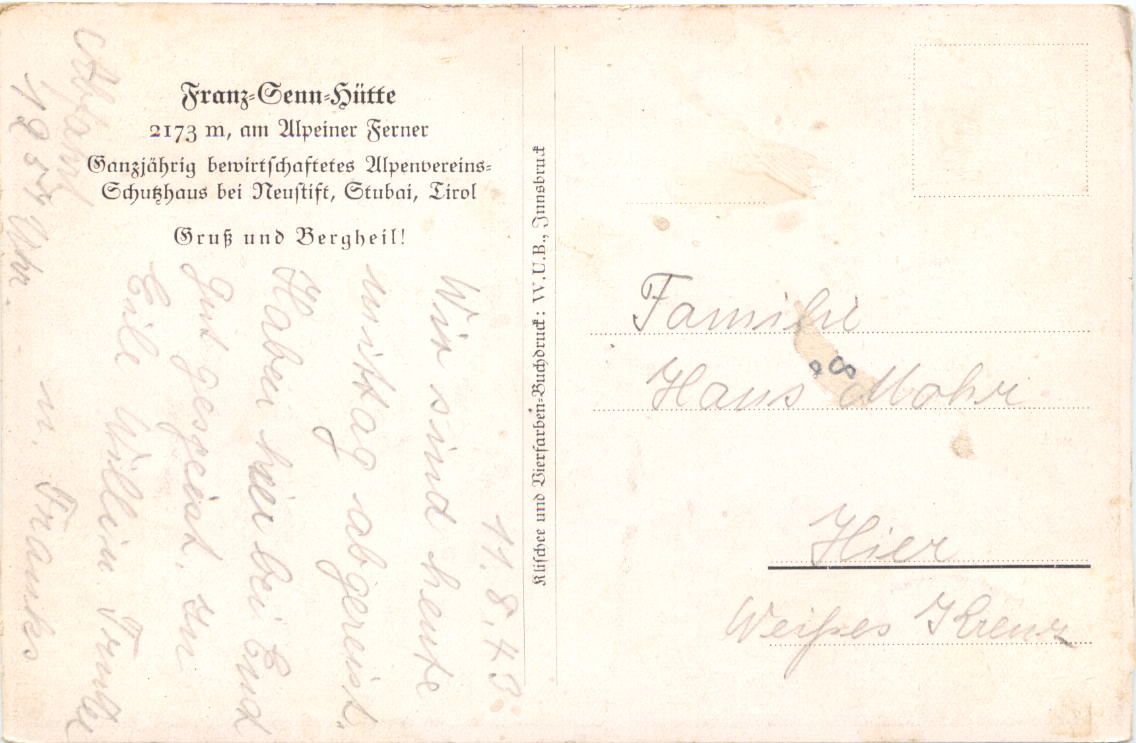 Franz-Senn-Hütte
2173 m, am Alpeiner Ferner
Ganzjährig bewirtschaftetes Alpenvereins-
Schutzhaus bei Neustift, Stubai, Tirol
Gruß und Bergheil!
11.8.43
Wir sind heute
mittag abgereist.
Haben hier bei Euch
gut gespeist. In
Eile
u. Franks
Abfahrt
Uhr.
Klischee und Vierfarben-Buchdruck: W.U.B., Innsbruck
Familie
Hans Mohr
Hier
Weißes Kreuz